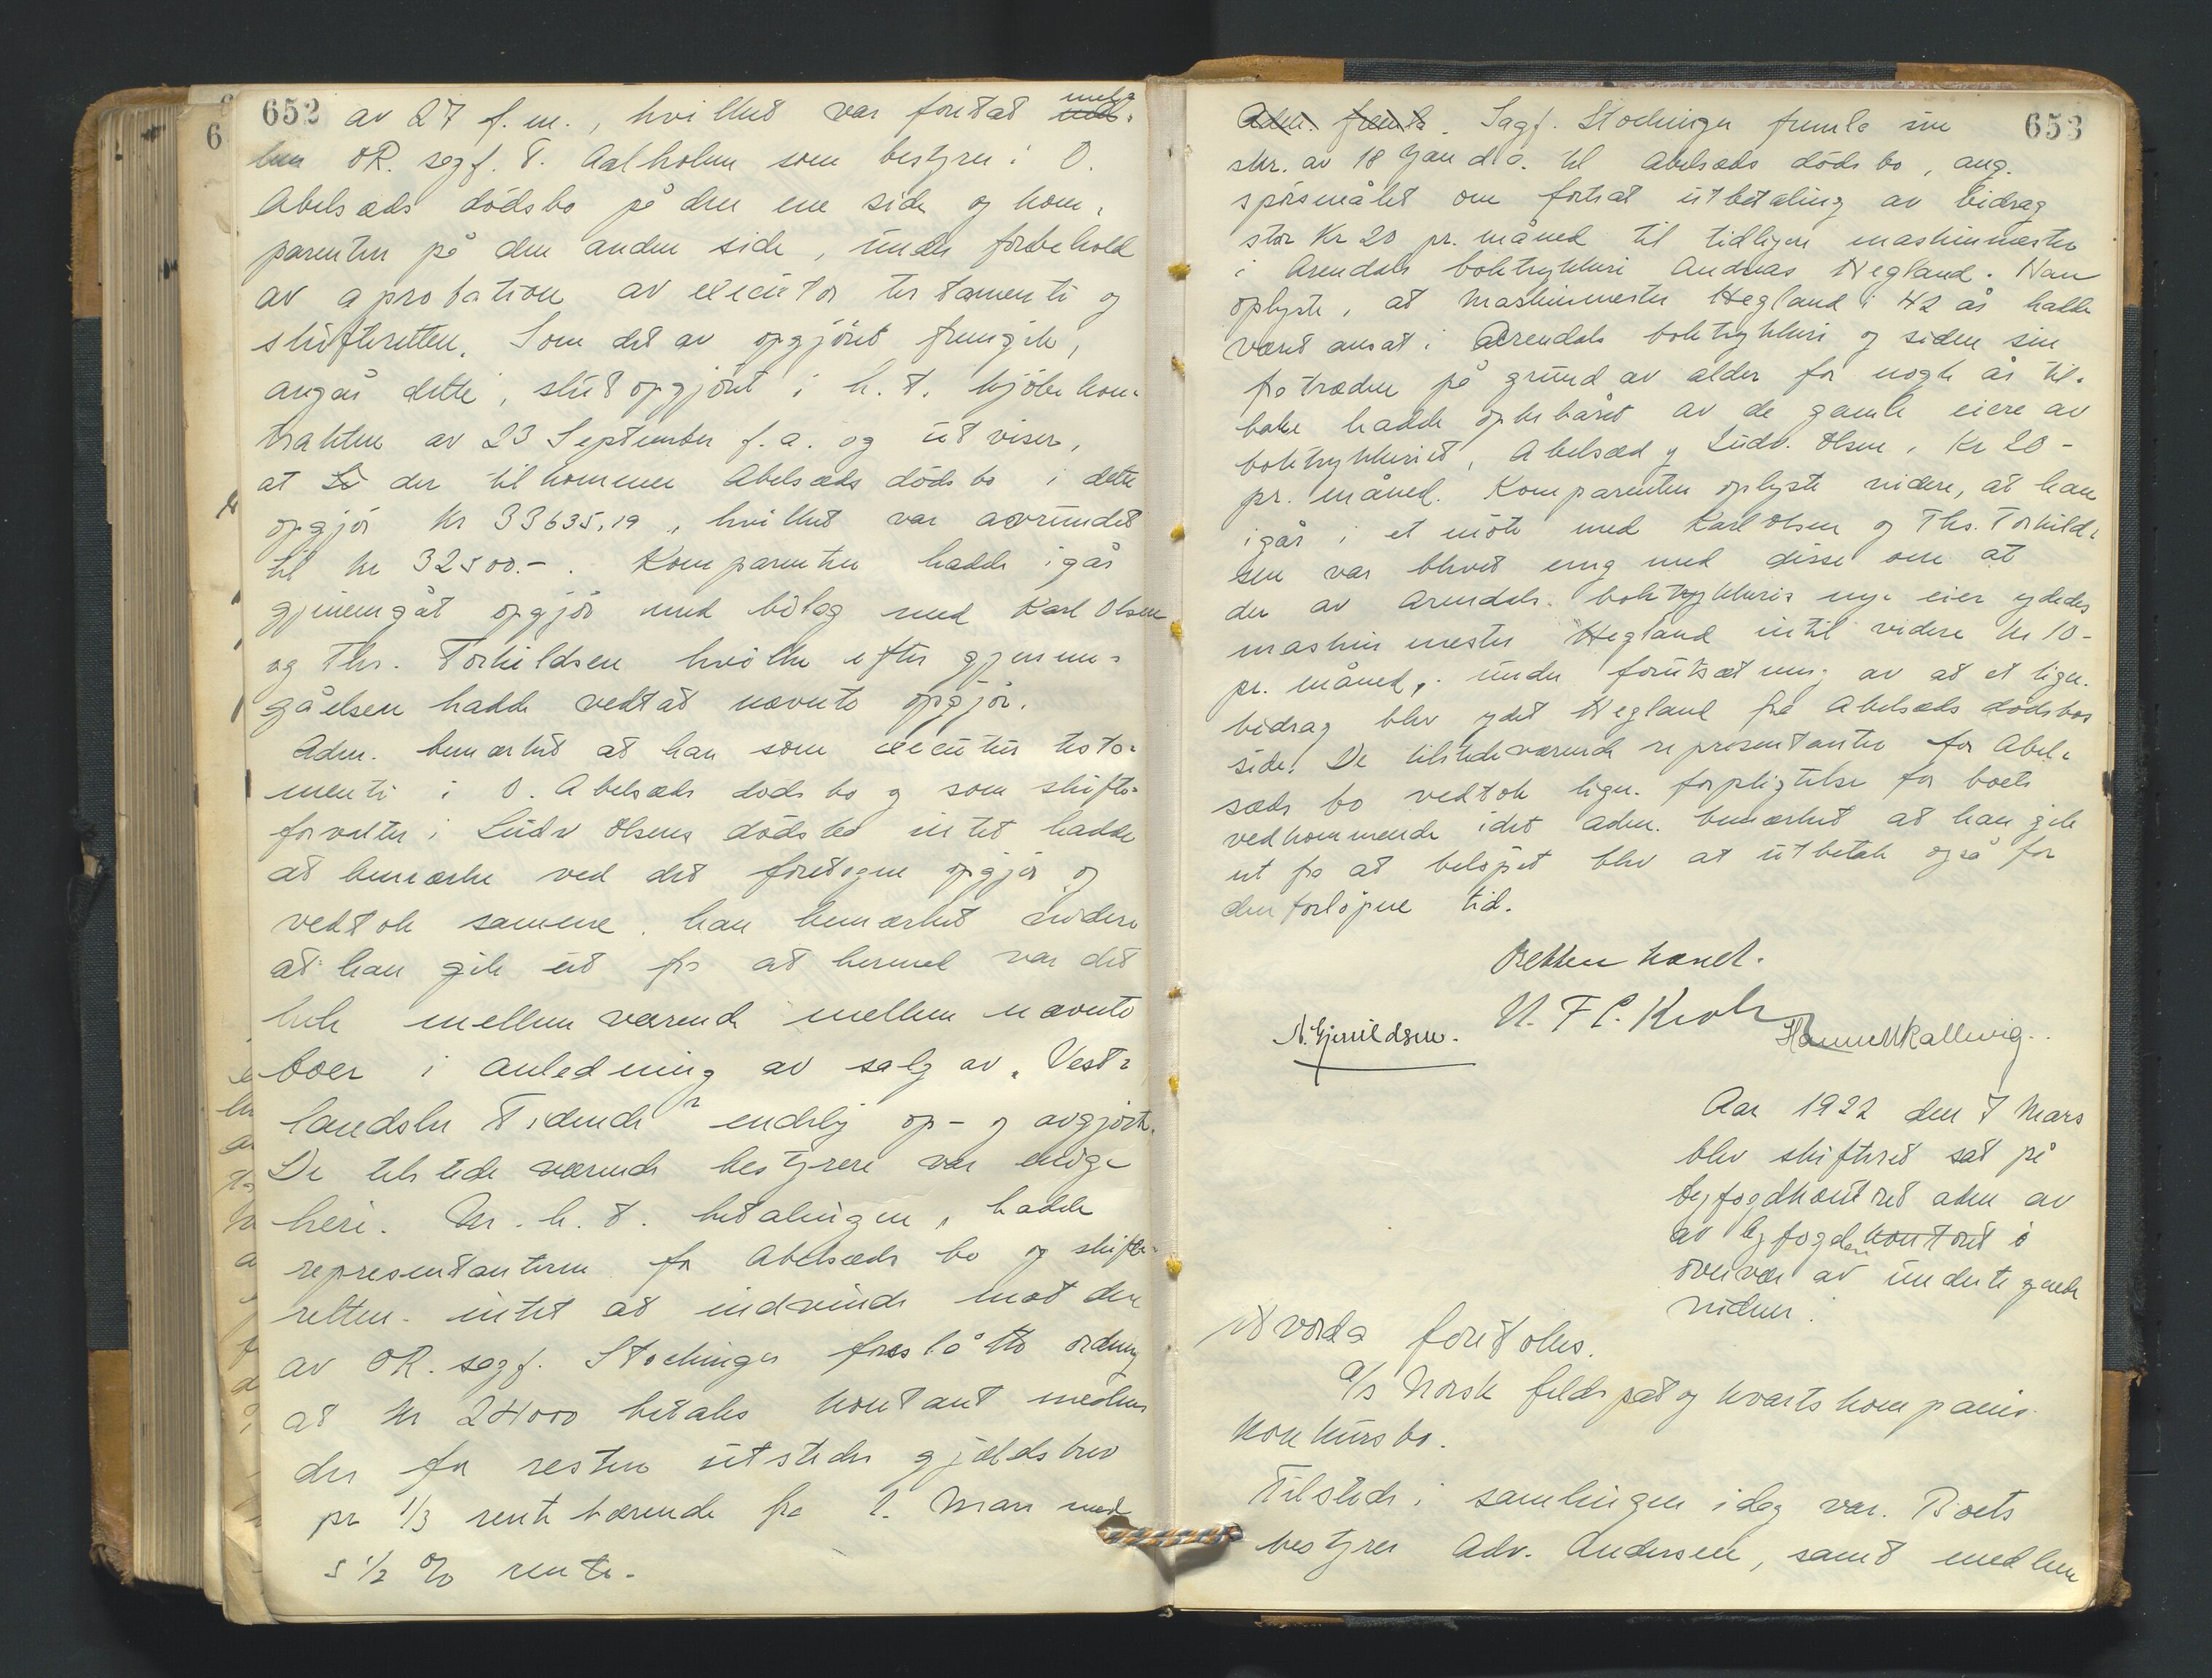 652
av 27 f.m., hvilket var foretat mel-
lem OR. sagf. T. Aalholm som bestyrer i O.
Abelsæds dödsbo på den ene side og kom-
parenten på den anden side, under forbehold
av aprobation av executor testamenti og
skifteretten. Som det av opgjöret fremgik,
angår dette, slutopgjöret i h.t. kjöbekon-
trakten av 23 September f.a. og utviser,
at der tilkommer Abelsæds dödsbo i dette
opgjör kr 33635,19, hvilket var avrundet
til kr 32500.-. Komparenten hadde igår
gjennemgåt opgjör med bilag med Karl Olsen
og Ths. Torkildsen hvilke efter gjennem-
gåelsen hadde vedtat nævnte opgjör.
Adm. bemærket at han som executor testa-
menti i O. Abelsæds dödsbo og som skifte-
forvalter i Ludv Olsens dödsbo intet hadde
at bemærke ved det foretagne opgjör og
vedtok samme. han bemærket videre
at han gik ut fra at hermed var det
hele mellemværende mellem nævnte
boer i anledning av salg av "Vest-
landske Tidende" endelig op- og avgjort.
De tilstedeværende bestyrere var enige
heri. M.h.t. betalingen, hadde
representanterne for Abelsæds bo og skifte-
retten intet at indvende mot den
av OR. sagf. Stochinger foreslåtte ordning
at kr 24000 betales kontant medens
der for resten utstedes gjældsbrev
pr 1/3 rentebærende fra 1. Mars med
5 1/2 % rente.
653
Adm. fremla. Sagf. Stochinger fremla sin
skr. av 18 Jan d.a. til Abelsæds dödsbo, ang.
spörsmålet om fortsat utbetaling av bidrag
stor Kr 20 pr. måned til tidligere maskinmester
i Arendals boktrykkeri Andreas Hegland. Han
oplyste, at Maskinmester Hegland i 42 år hadde
været ansat i Arendals boktrykkeri og siden sin
fratræden på grund av alder for nogle år til-
bake hadde opebåret av de gamle eiere av
boktrykkeriet, Abelsæd og Ludv. Olsen, Kr 20-
pr. måned. Komparenten oplyste videre, at han
igår i et möte med Karl Olsen og Ths. Torkild-
sen var blevet enig med disse om at
der av Arendals boktrykkeris nye eier ydedes
maskinmester Hegland intil videre kr 10-
pr. måned, under forutsætning av at et lign.
bidrag blev ydet Hegland fra Abelsæds dödsbos
side. De tilstedeværende representanter for Abel-
sæds bo vedtok lign. forpligtelse for boets
vedkommende idet adm. bemærket at han gik
ut fra at belöpet blev at utbetale også for
den forlöpne tid.
Retten hævet.
Aar 1922 den 7 Mars
blev skifteret sat på
byfogdkontoret adm av
av byfogden kontoret i
overvær av undertegnede
vidner.
Hvorda foretokes.
A/s Norsk feldspat og kvarts kompanis
konkursbo.
Tilstede i samlingen idag var. Boets
bestyrer Adv. Andersen, samt medlem